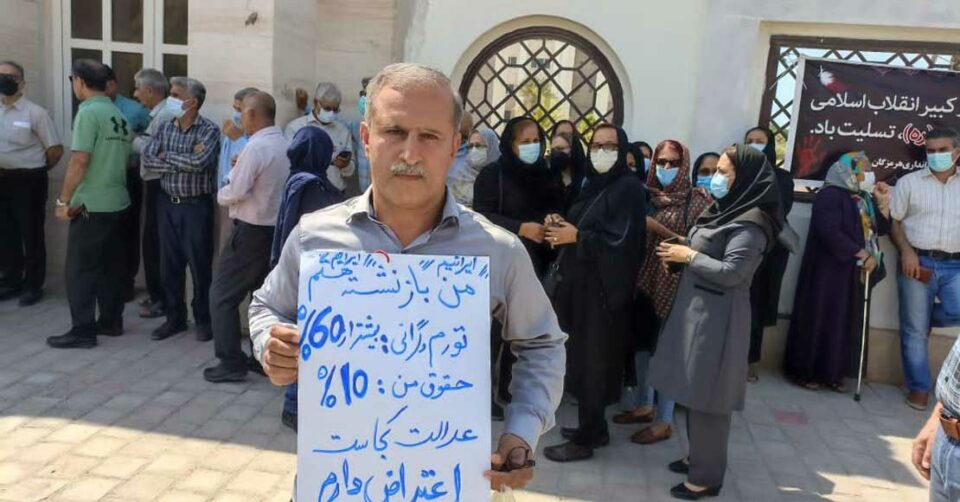 "ایرانیم" "ایرانیم"
من بازنشسته هستم
تورم و گرانی: بیشتر از 60%
حقوق من: 10%
عدالت کجاست
اعتراض دارم
کبیر انقلاب اسلامی
(ره)، تسلیت باد.
استانداری هرمزگان